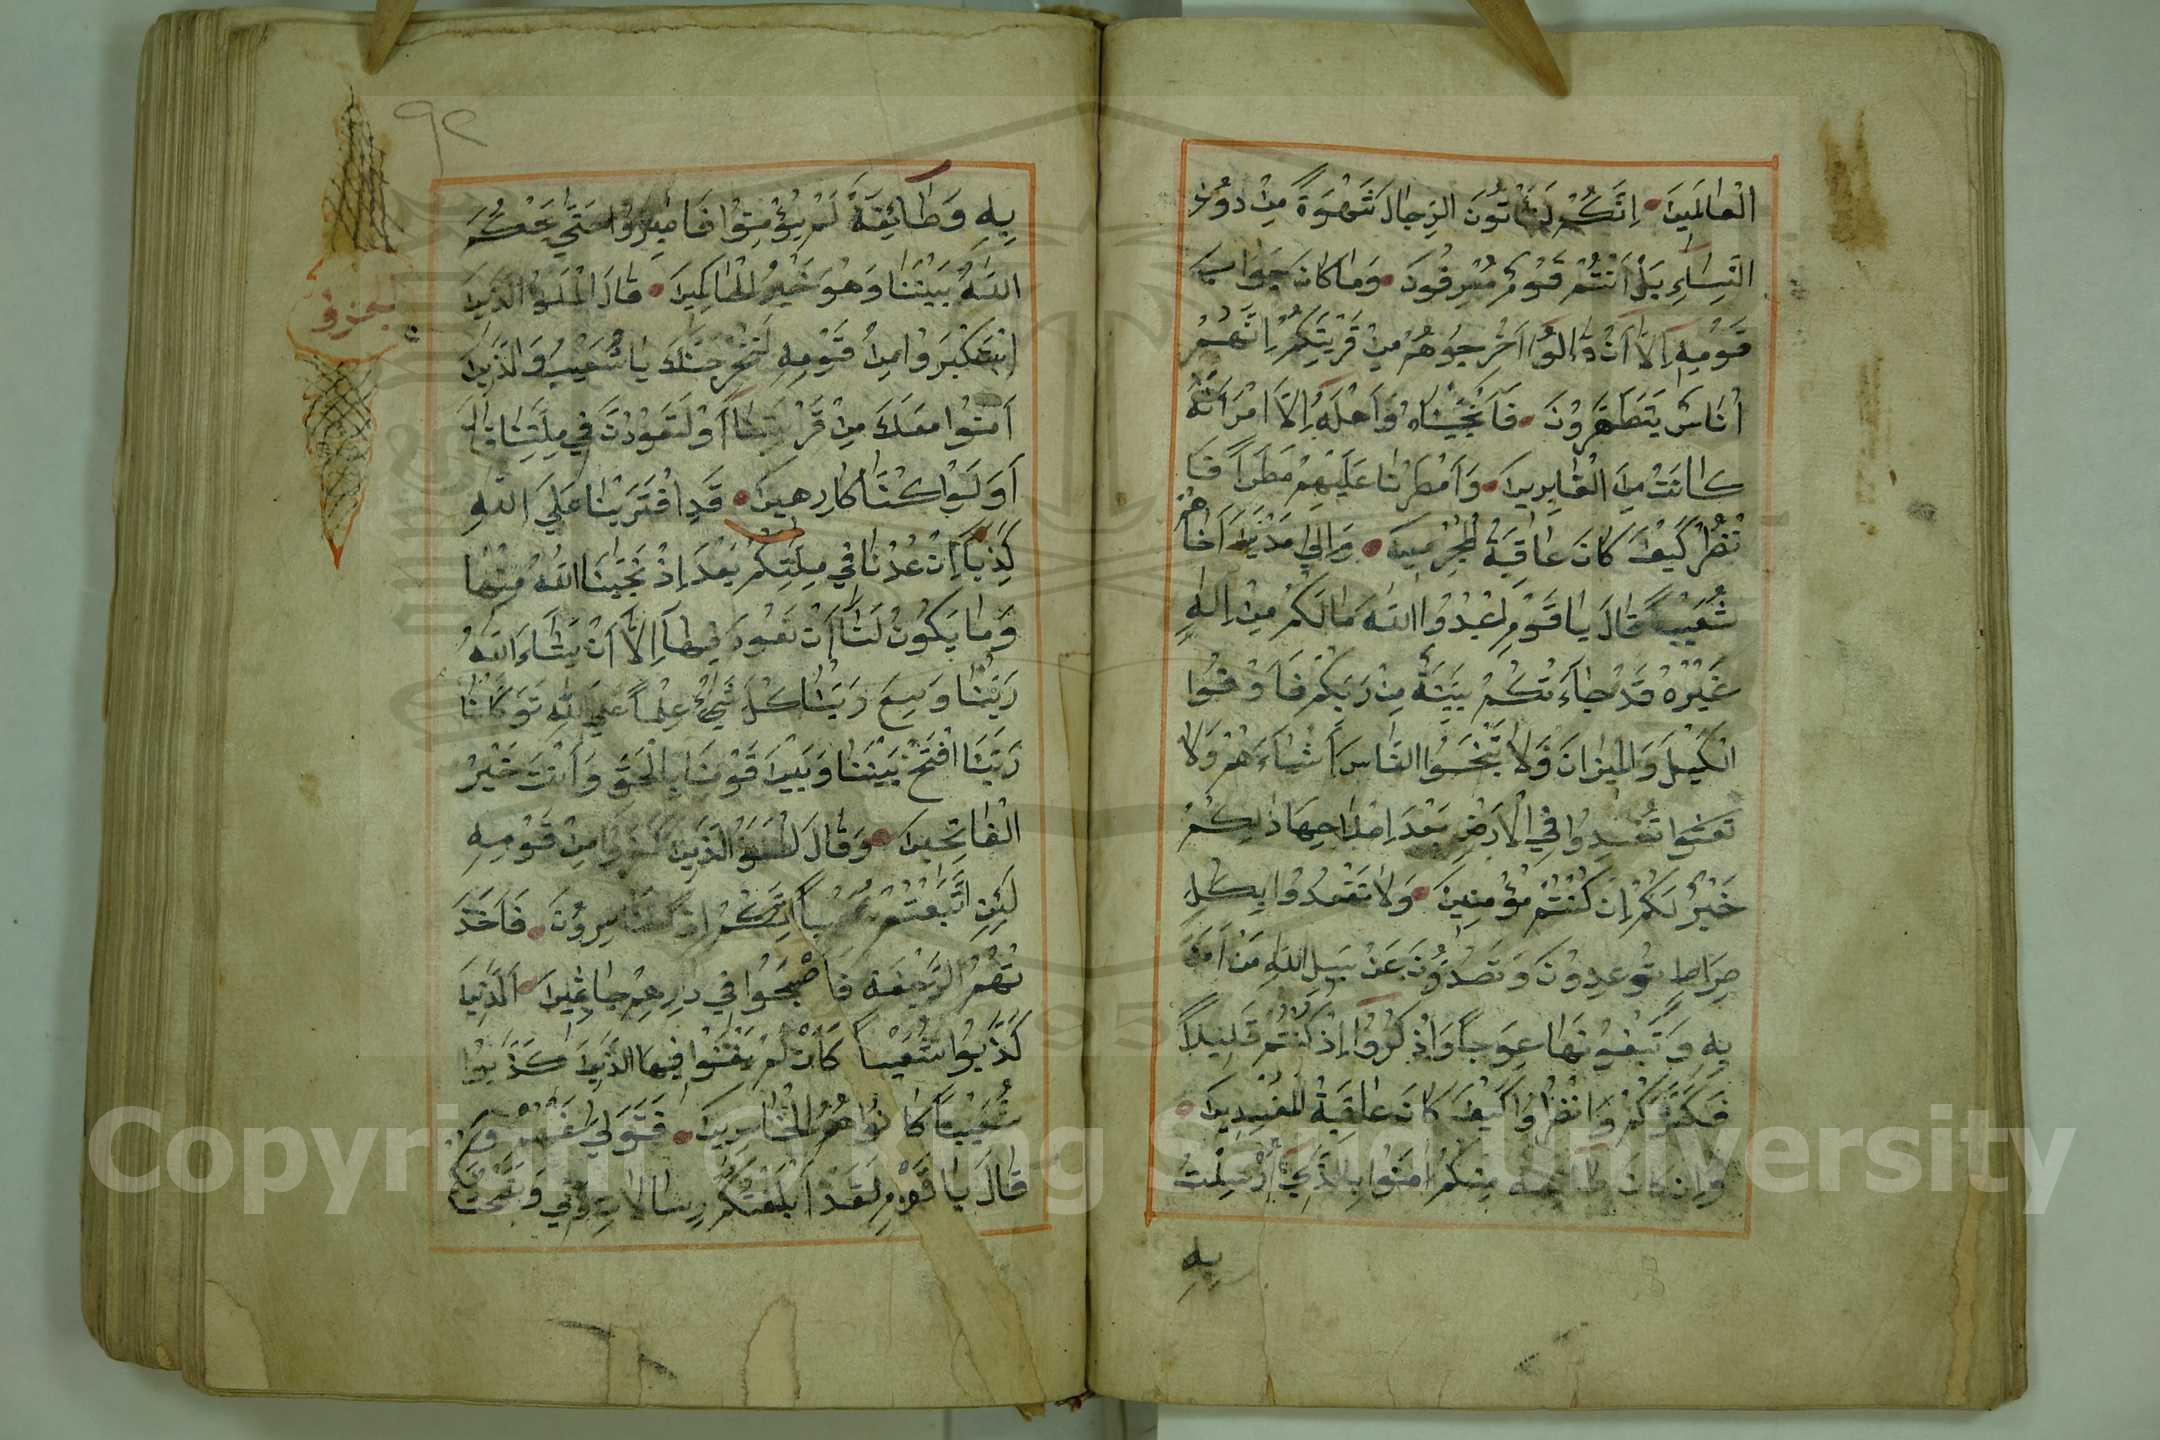 الْعٰالَمِينَ اِنَّكُمْ لَتَأْتُونَ الرِّجٰالَ شَهْوَةً مِنْ دُونِ
النِّسٰاءِ بَلْ اَنْتُمْ قَوْمٌ مُسْرِفُونَ وَمٰا كٰانَ جَوٰابَ
قَوْمِهِ اِلَّا اَنْ قٰالُوا اَخْرِجُوهُمْ مِنْ قَرْيَتِكُمْ اِنَّهُمْ
اُنٰاسٌ يَتَطَهَّرُونَ فَاَنْجَيْنٰاهُ وَاَهْلَهُ اِلَّا امْرَاَتَهُ
كٰانَتْ مِنَ الْغٰابِرِينَ وَاَمْطَرْنٰا عَلَيْهِمْ مَطَرًا فَا
نْظُرْ كَيْفَ كٰانَ عٰاقِبَةُ الْمُجْرِمِينَ وَاِلٰي مَدْيَنَ اَخٰاهُمْ
شُعَيْبًا قٰالَ يٰا قَوْمِ اعْبُدُوا اللّٰهَ مٰا لَكُمْ مِنْ اِلٰهٍ
غَيْرُهُ قَدْ جٰاءَتْكُمْ بَيِّنَةٌ مِنْ رَبِّكُمْ فَاَوْفُوا
الْكَيْلَ وَالْمِيزٰانَ وَلٰا تَبْخَسُوا النّٰاسَ اَشْيٰاءَهُمْ وَلٰا
تَعْثَوْا تُفْسِدُوا فِي الْاَرْضِ بَعْدَ اِصْلٰاحِهٰا ذٰلِكُمْ
خَيْرٌ لَكُمْ اِنْ كُنْتُمْ مُؤْمِنِينَ وَلٰا تَقْعُدُوا بِكُلِّ
صِرٰاطٍ تُوعِدُونَ وَتَصُدُّونَ عَنْ سَبِيلِ اللّٰهِ مَنْ اٰمَنَ
بِهِ وَتَبْغُونَهٰا عِوَجًا وَاذْكُرُوا اِذْ كُنْتُمْ قَلِيلًا
فَكَثَّرَكُمْ وَانْظُرُوا كَيْفَ كٰانَ عٰاقِبَةُ الْمُفْسِدِينَ
وَاِنْ كٰانَ طٰائِفَةٌ مِنْكُمْ اٰمَنُوا بِالَّذِي اُرْسِلْتُ
بِهِ
٩٢
بِهِ وَطٰائِفَةٌ لَمْ يُؤْمِنُوا فَاصْبِرُوا حَتّٰي يَحْكُمَ
اللّٰهُ بَيْنَنٰا وَهُوَ خَيْرُ الْحٰاكِمِينَ قٰالَ الْمَلَؤُ الَّذِينَ
اسْتَكْبَرُوا مِنْ قَوْمِهِ لَنُخْرِجَنَّكَ يٰا شُعَيْبُ وَالَّذِينَ
اٰمَنُوا مَعَكَ مِنْ قَرْيَتِنٰا اَوْ لَتَعُودُنَّ فِي مِلَّتِنٰا قٰالَ
اَوَلَوْ كُنّٰا كٰارِهِينَ قَدِ افْتَرَيْنٰا عَلَي اللّٰهِ
كَذِبًا اِنْ عُدْنٰا فِي مِلَّتِكُمْ بَعْدَ اِذْ نَجّٰينَا اللّٰهُ مِنْهٰا
وَمٰا يَكُونُ لَنٰا اَنْ نَعُودَ فِيهٰا اِلَّا اَنْ يَشٰاءَ اللّٰهُ
رَبُّنٰا وَسِعَ رَبُّنٰا كُلَّ شَيْءٍ عِلْمًا عَلَي اللّٰهِ تَوَكَّلْنٰا
رَبَّنَا افْتَحْ بَيْنَنٰا وَبَيْنَ قَوْمِنٰا بِالْحَقِّ وَاَنْتَ خَيْرُ
الْفٰاتِحِينَ وَقٰالَ الْمَلَؤُ الَّذِينَ كَفَرُوا مِنْ قَوْمِهِ
لَئِنِ اتَّبَعْتُمْ شُعَيْبًا اِنَّكُمْ اِذًا لَخٰاسِرُونَ فَاَخَذَ
تْهُمُ الرَّجْفَةُ فَاَصْبَحُوا فِي دٰارِهِمْ جٰاثِمِينَ اَلَّذِينَ
كَذَّبُوا شُعَيْبًا كَاَنْ لَمْ يَغْنَوْا فِيهٰا الَّذِينَ كَذَّبُوا
شُعَيْبًا كٰانُوا هُمُ الْخٰاسِرِينَ فَتَوَلّٰي عَنْهُمْ وَ
قٰالَ يٰا قَوْمِ لَقَدْ اَبْلَغْتُكُمْ رِسٰالٰاتِ رَبِّي وَنَصَحْتُ لَكُمْ
Copyright © King Saud University